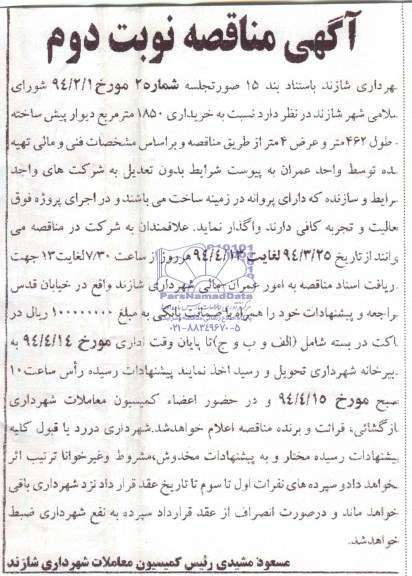 آگهی مناقصه نوبت دوم
هرداری شازند باستناد بند ۱۵ صورتجلسه شماره۲ مورخ ۹۴/۲/۱ شورای
سلامی شهر شازند در نظر دارد نسبت به خریداری ۱۸۵۰ مترمربع دیوار پیش ساخته
طول ۴۶۲متر و عرض ۴ متر از طریق مناقصه و براساس مشخصات فنی و مالی تهیه
شده توسط واحد عمران به پیوست شرایط بدون تعدیل به شرکت های واجد
رایط و سازنده که دارای پروانه در زمینه ساخت می باشند و در اجرای پروژه فوق
عالیت و تجربه کافی دارند واگذار نماید. علاقمندان به شرکت در مناقصه می
وانند از تاریخ ۹۴/۳/۲۵ لغایت ۹۴/۴/۱۳ هرروز از ساعت ۷/۳۰ لغایت ۱۳ جهت
ریافت اسناد مناقصه به امور عمران مالی شهرداری شازند واقع در خیابان قدس
راجعه و پیشنهادات خود را همراه با ضمانت بانکی به مبلغ ۱۰۰۰۰۰۰۰۰ ریال در
اکت در بسته شامل (الف و ب و ج) تا پایان وقت اداری مورخ ۹۴/۴/۱۴ به
بیرخانه شهرداری تحویل و رسید اخذ نمایند پیشنهادات رسیده رأس ساعت۱۰
صبح مورخ ۹۴/۴/۱۵ و در حضور اعضاء کمیسیون معاملات شهرداری
ازگشائی، قرائت و برنده مناقصه اعلام خواهدشد.شهرداری دررد یا قبول کلیه
پیشنهادات رسیده مختار و به پیشنهادات مخدوش،مشروط وغیرخوانا ترتیب اثر
نخواهد دادو سپرده های نفرات اول تا سوم تا تاریخ عقد قرار داد نزد شهرداری باقی
خواهد ماند و درصورت انصراف از عقد قرارداد سپرده به نفع شهرداری ضبط
خواهدشد.
مسعود مشیدی رئیس کمیسیون معاملات شهرداری شازند
ParsNamadData
۰۲۱-۸۸۳۴۹۶۷۰-۵